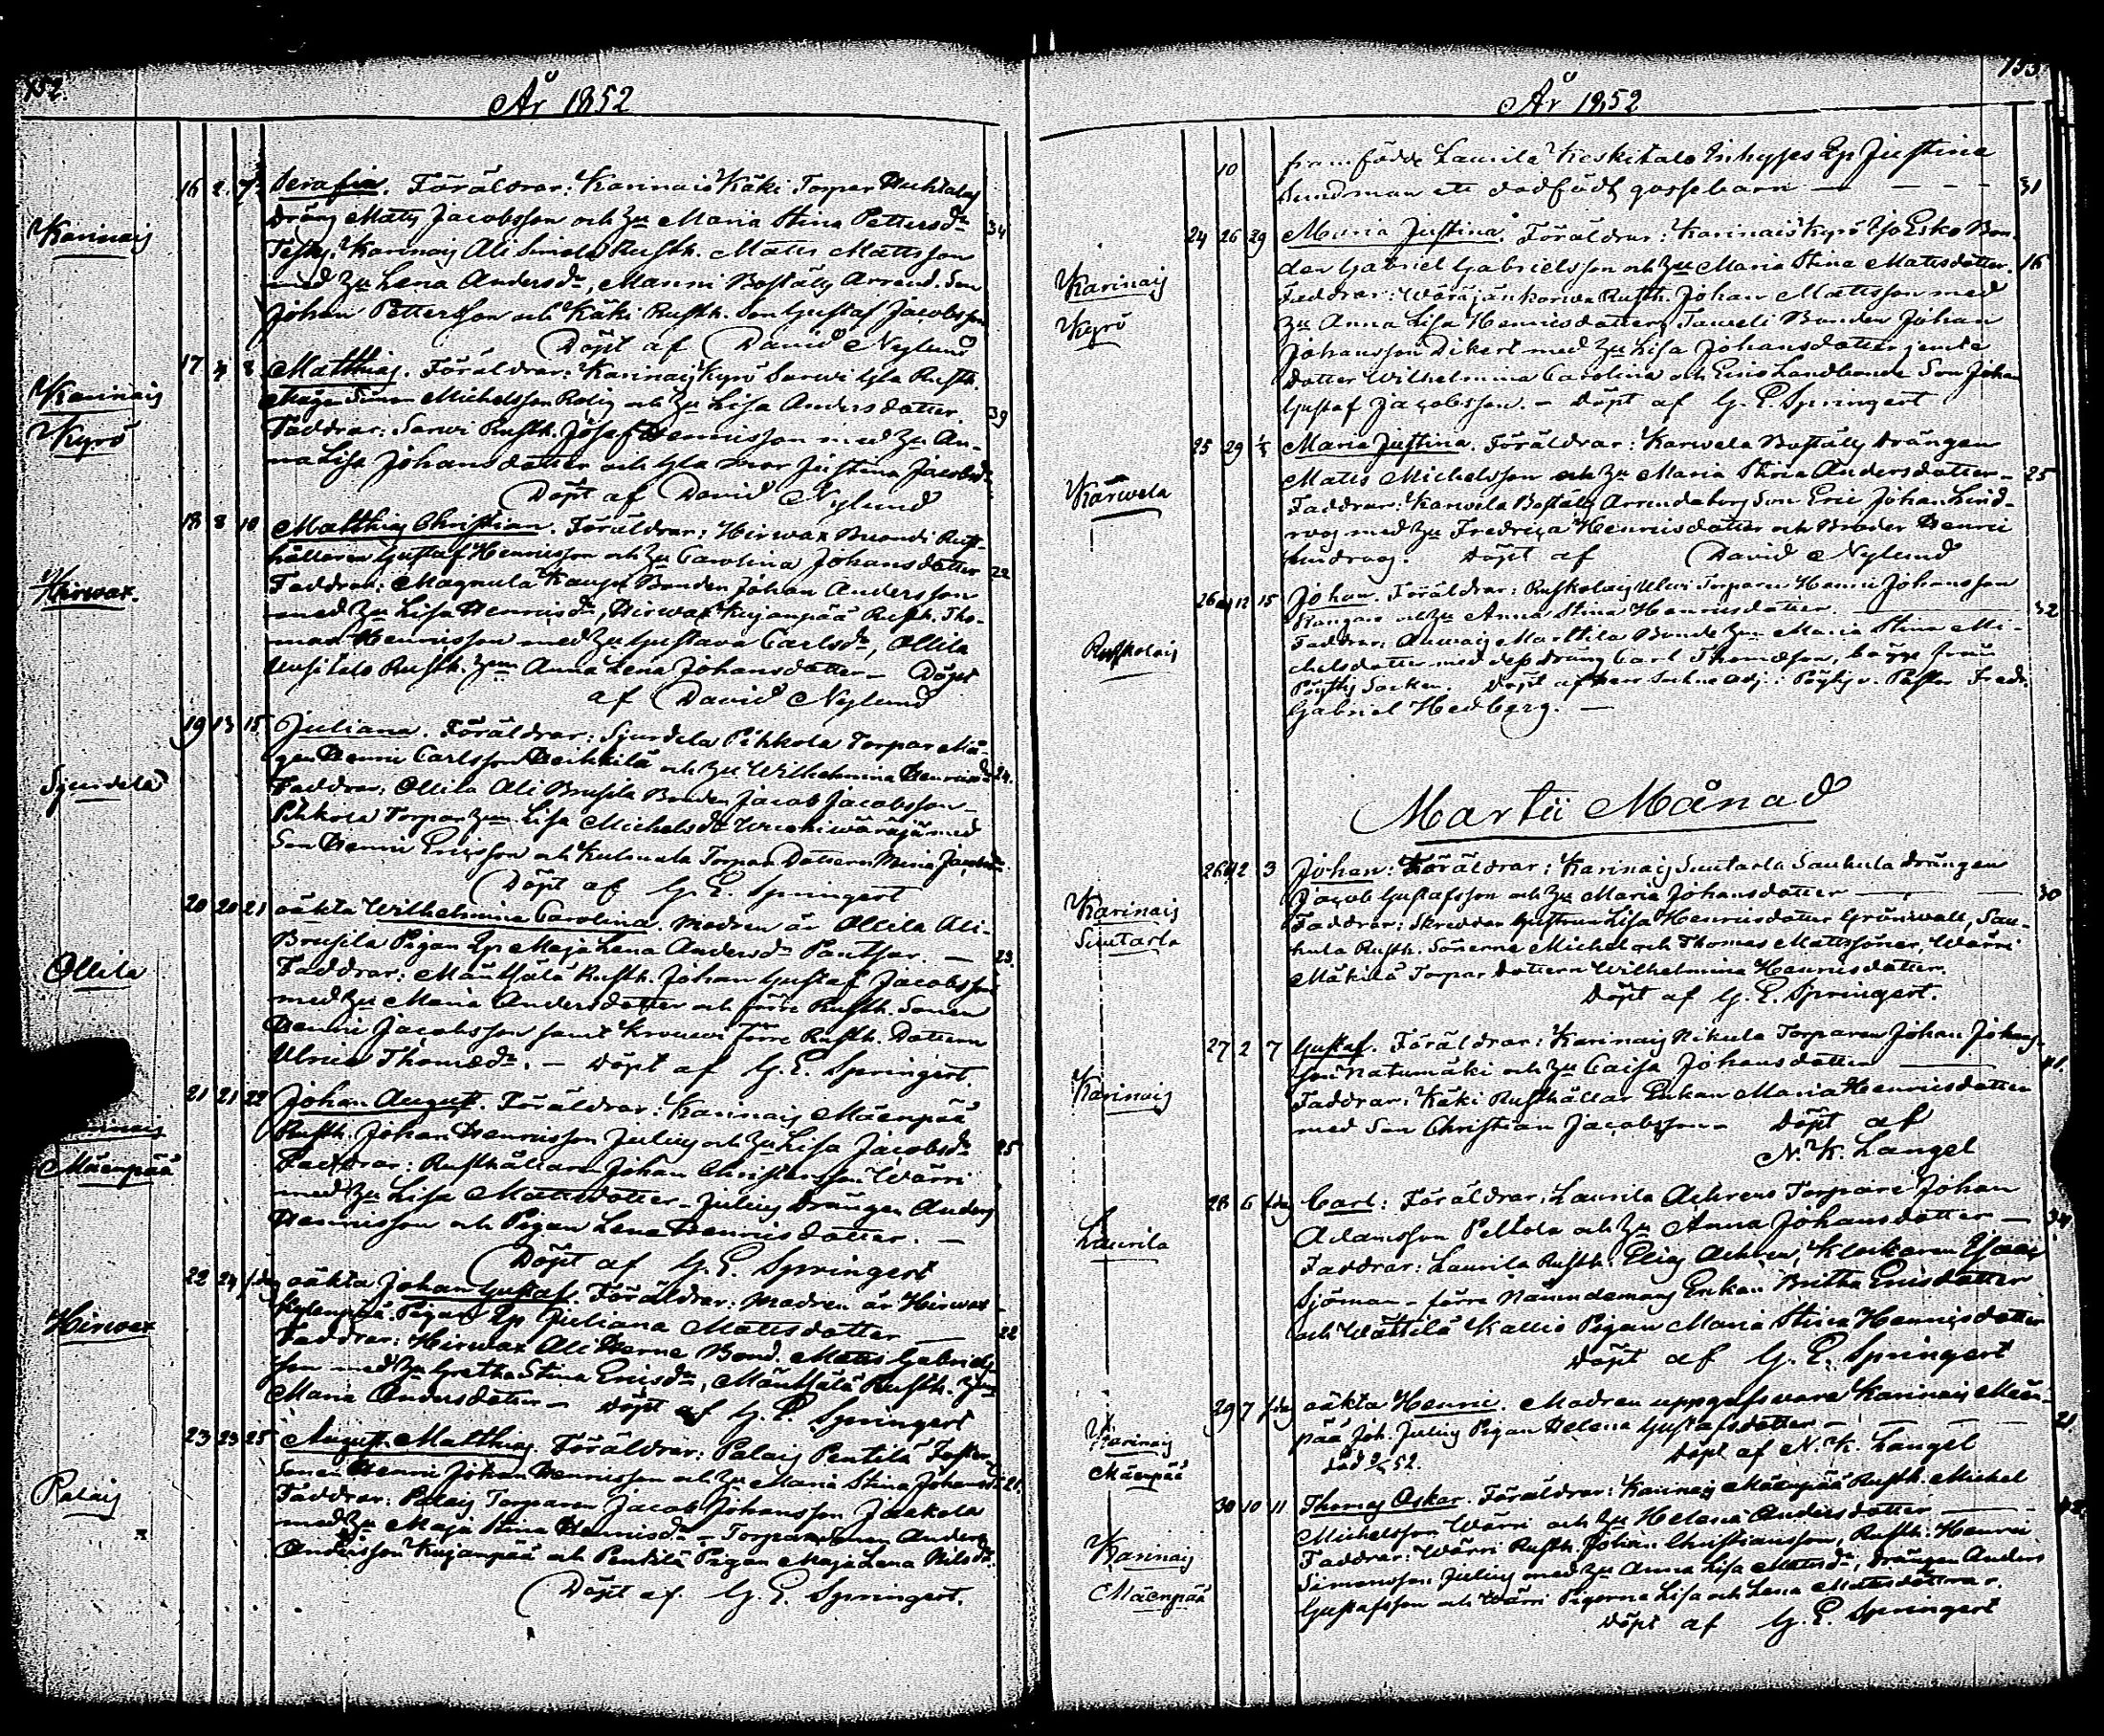 152.
År 1852
Karinais
16 2. 7. Serafia. Föräldrar: Karinais Käki Torpar
Dräng Matts Jacobsson och Hu Maria Stina Pettersdr 34
Karinais Ali Simola Rusth. Matts Mattsson
med Hu Lena Andersdr, Manni Boställs Arrend. Son
Johan Pettersson och Käki Rusth. Son Gustaf Jacobsson
Döpt af David Nylund
Karinais
Kyrö
17 4 8 Matthias. Föräldrar: Karinais Kyrö Sarwi Gla Rusth.
Mågen Simon Michelsson Rolig och Hu Lisa Andersdotter 39
Faddrar: Sarwi Rusth. Josef Henriksson med Hu An-
na Lisa Johansdotter och Gla mor Justina Jacobsdr
Döpt af David Nylund
Hirwax.
18 8 10 Matthias Christian. Föräldrar: Hirwax Rust-
hållaren Gustaf Henriksson och Hu Carolina Johansdotter 22
Faddrar: Magnula Kaupi Bonden Johan Andersson
med Hu Lisa Henricsdr, Hirwax Kujanpää Rusth. Tho-
mas Henriksson med Hu Gustava Carlsdr, Ollila
Uusitalo Rusth. Hun Anna Lena Johansdotter – Döpt
af David Nylund
Sjundela
19 13 15 Juliana. Föräldrar: Sjundela Pihkola Torpar Må-
gen Henric Carlsson Heikkilä och Hu Wilhelmina Henricsdr 24.
Faddrar: Ollila Ali Brusila Bonden Jacob Jacobsson –
Pihkola Torpar Hun Lisa Michelsdr med
Son Henric Ericsson och Torpar Dottern Mina Jacobsdr
Döpt af G. E. Springert
Ollila
20 20 21 oäkta Wilhelmina Carolina. Modren är Ollila Ali-
Brusila Pigan Ep Maja Lena Andersdr Panthar. – 23.
Faddrar: Mänthälä Rusth. Johan Gustaf Jacobsson
med Hu Maria Andersdotter och förre Rusth. Sonen
Henric Jacobsson samt Krouwi förre Rusth. Dottern
Ulrica Thomædr. – Döpt af G. E. Springert.
Mäenpää
21 21 22 Johan August. Föräldrar: Karinais Mäenpää
Rusth. Johan Henriksson Julius och Hu Lisa Jacobsdr 25
Faddrar: Rusthållaren Johan Christiansson Wärri
med Hu Lisa Mattsdotter – Julius Drängen Anders
Henriksson och Pigan Lena Henricsdotter. –
Döpt af G. E. Springert
Hirwax
22 24 s.dag oäkta Johan Gustaf. Föräldrar: Modren är Hirwax
Pigan Ep Juliana Mattsdotter – 22
Faddrar: Hirwax Ali Herne Bond. Matts Gabriels-
son med Hu Gretha Stina Ericsdr, Mänthälä Rusth. Hun
Maria Andersdotter – Döpt af G. E. Springert
Palais
23 23 25 August Matthias. Föräldrar: Palais Pentilä
Sonen Henric Johan Henriksson och Hu Maria Stina Johansdr 21.
Faddrar: Palais Torparen Jacob Johansson Jaakola
med Hu Maja Stina Henricsdr – Torpare Sonen Anders
Andersson Kujanpää och Pentilä Pigan Maja Lena Nilsdr.
Döpt af. G. E. Springert.
153.
År 1852
10 framfödde Laurila Keskitalo Inhyses Ep Justina
Sundman ett dödfödt gossebarn – – – – 31
Karinais
Kyrö
24 26 29 Maria Justina. Föräldrar: Karinais Kyrö Iso Esko Bon-
den Gabriel Gabrielsson och Hu Maria Stina Mattsdotter. 16
Faddrar: Wäräjänkorwa Rusth. Johan Mattsson med
Hu Anna Lisa Henricsdotter, Taweli Bonden Johan
Johansson Dikert med Hu Lisa Johansdotter jemte
dotter Wilhelmina Carolina och Landbonde Son Johan
Gustaf Jacobsson. – Döpt af G. E. Springert
Karwela
25 29 Maria Justina. Föräldrar: Karwela Boställs Drängen
Matts Michelsson och Hu Maria Stina Andersdotter – 25
Faddrar: Karwela Boställs Arrendators Son Eric Johan Lind-
roos med Hu Fredrica Henricsdotter och Broder Henric
Lindroos. Döpt af David Nylund
Ruskolais
12 15 Johan. Föräldrar: Ruskolais Ulwi Torparen Henric Johansson
Kangare och Hu Anna Stina Henricsdotter. 32
Faddrar: Auwais Marttila Bonde Hun Maria Stina Mi-
chelsdotter med dess dräng Carl Thomæson, bägge från
Pöytis Socken. Döpt af herr Sockne Adj. i Pöytis v. Pastor Fredr.
Gabriel Hedberg. –
Martii Månad
Karinais
Suutarla
2 3 Johan: Föräldrar: Karinais Suutarla Saukula Drängen
Jacob Gustafsson och Hu Maria Johansdotter – 30
Faddrar: Skreddar Hustrun Lisa Henricsdotter Grönwall, Sau-
kula Rusth. Sönerne Michel och Thomas Mattssöner, Wärri
Mäkilä Torpar Dottern Wilhelmina Henricsdotter.
Döpt af G. E. Springert.
Karinais
27 2 7 Gustaf. Föräldrar: Karinais Nikula Torparen Johan Johans-
son Natumäki och Hu Caisa Johansdotter – 41.
Faddrar: Käki Rusthållar Enkan Maria Henricsdotter
med Son Christian Jacobsson – Döpt af
N. K. Langel
Laurila
28 6 s.dag Carl: Föräldrar: Laurila Achrens Torpare Johan
Adamsson Peltola och Hu Anna Johansdotter – 34.
Faddrar: Laurila Rusth. Elias Achren, Klockaren Isaac
Sjöman – förre Nämndemans Enkan Britha Ericsdotter
och Wättilä Kallio Pigan Maria Stina Henricsdotter
Döpt af G. E. Springert
Karinais
Mäenpää
29 7 s.dag oäkta Henric. Modren uppgafs vara Karinais Mäen-
pää Joh. Julius Pigan Helena Gustafsdotter – – – 21.
Död 52. Döpt af N. K. Langel
Karinais
Mäenpää
30 10 11 Thomas Oskar. Föräldrar: Karinais Mäenpää Rusth. Michel
Michelsson Wärri och Hu Helena Andersdotter – 42
Faddrar: Wärri Rusth. Johan Christiansson, Rusth. Henric
Simonsson Julius med Hu Anna Lisa Mattsdr, Drängen Anders
Gustafsson och Wärri Pigorna Lisa och Lena Mattsdöttrar.
Döpt af G. E. Springert